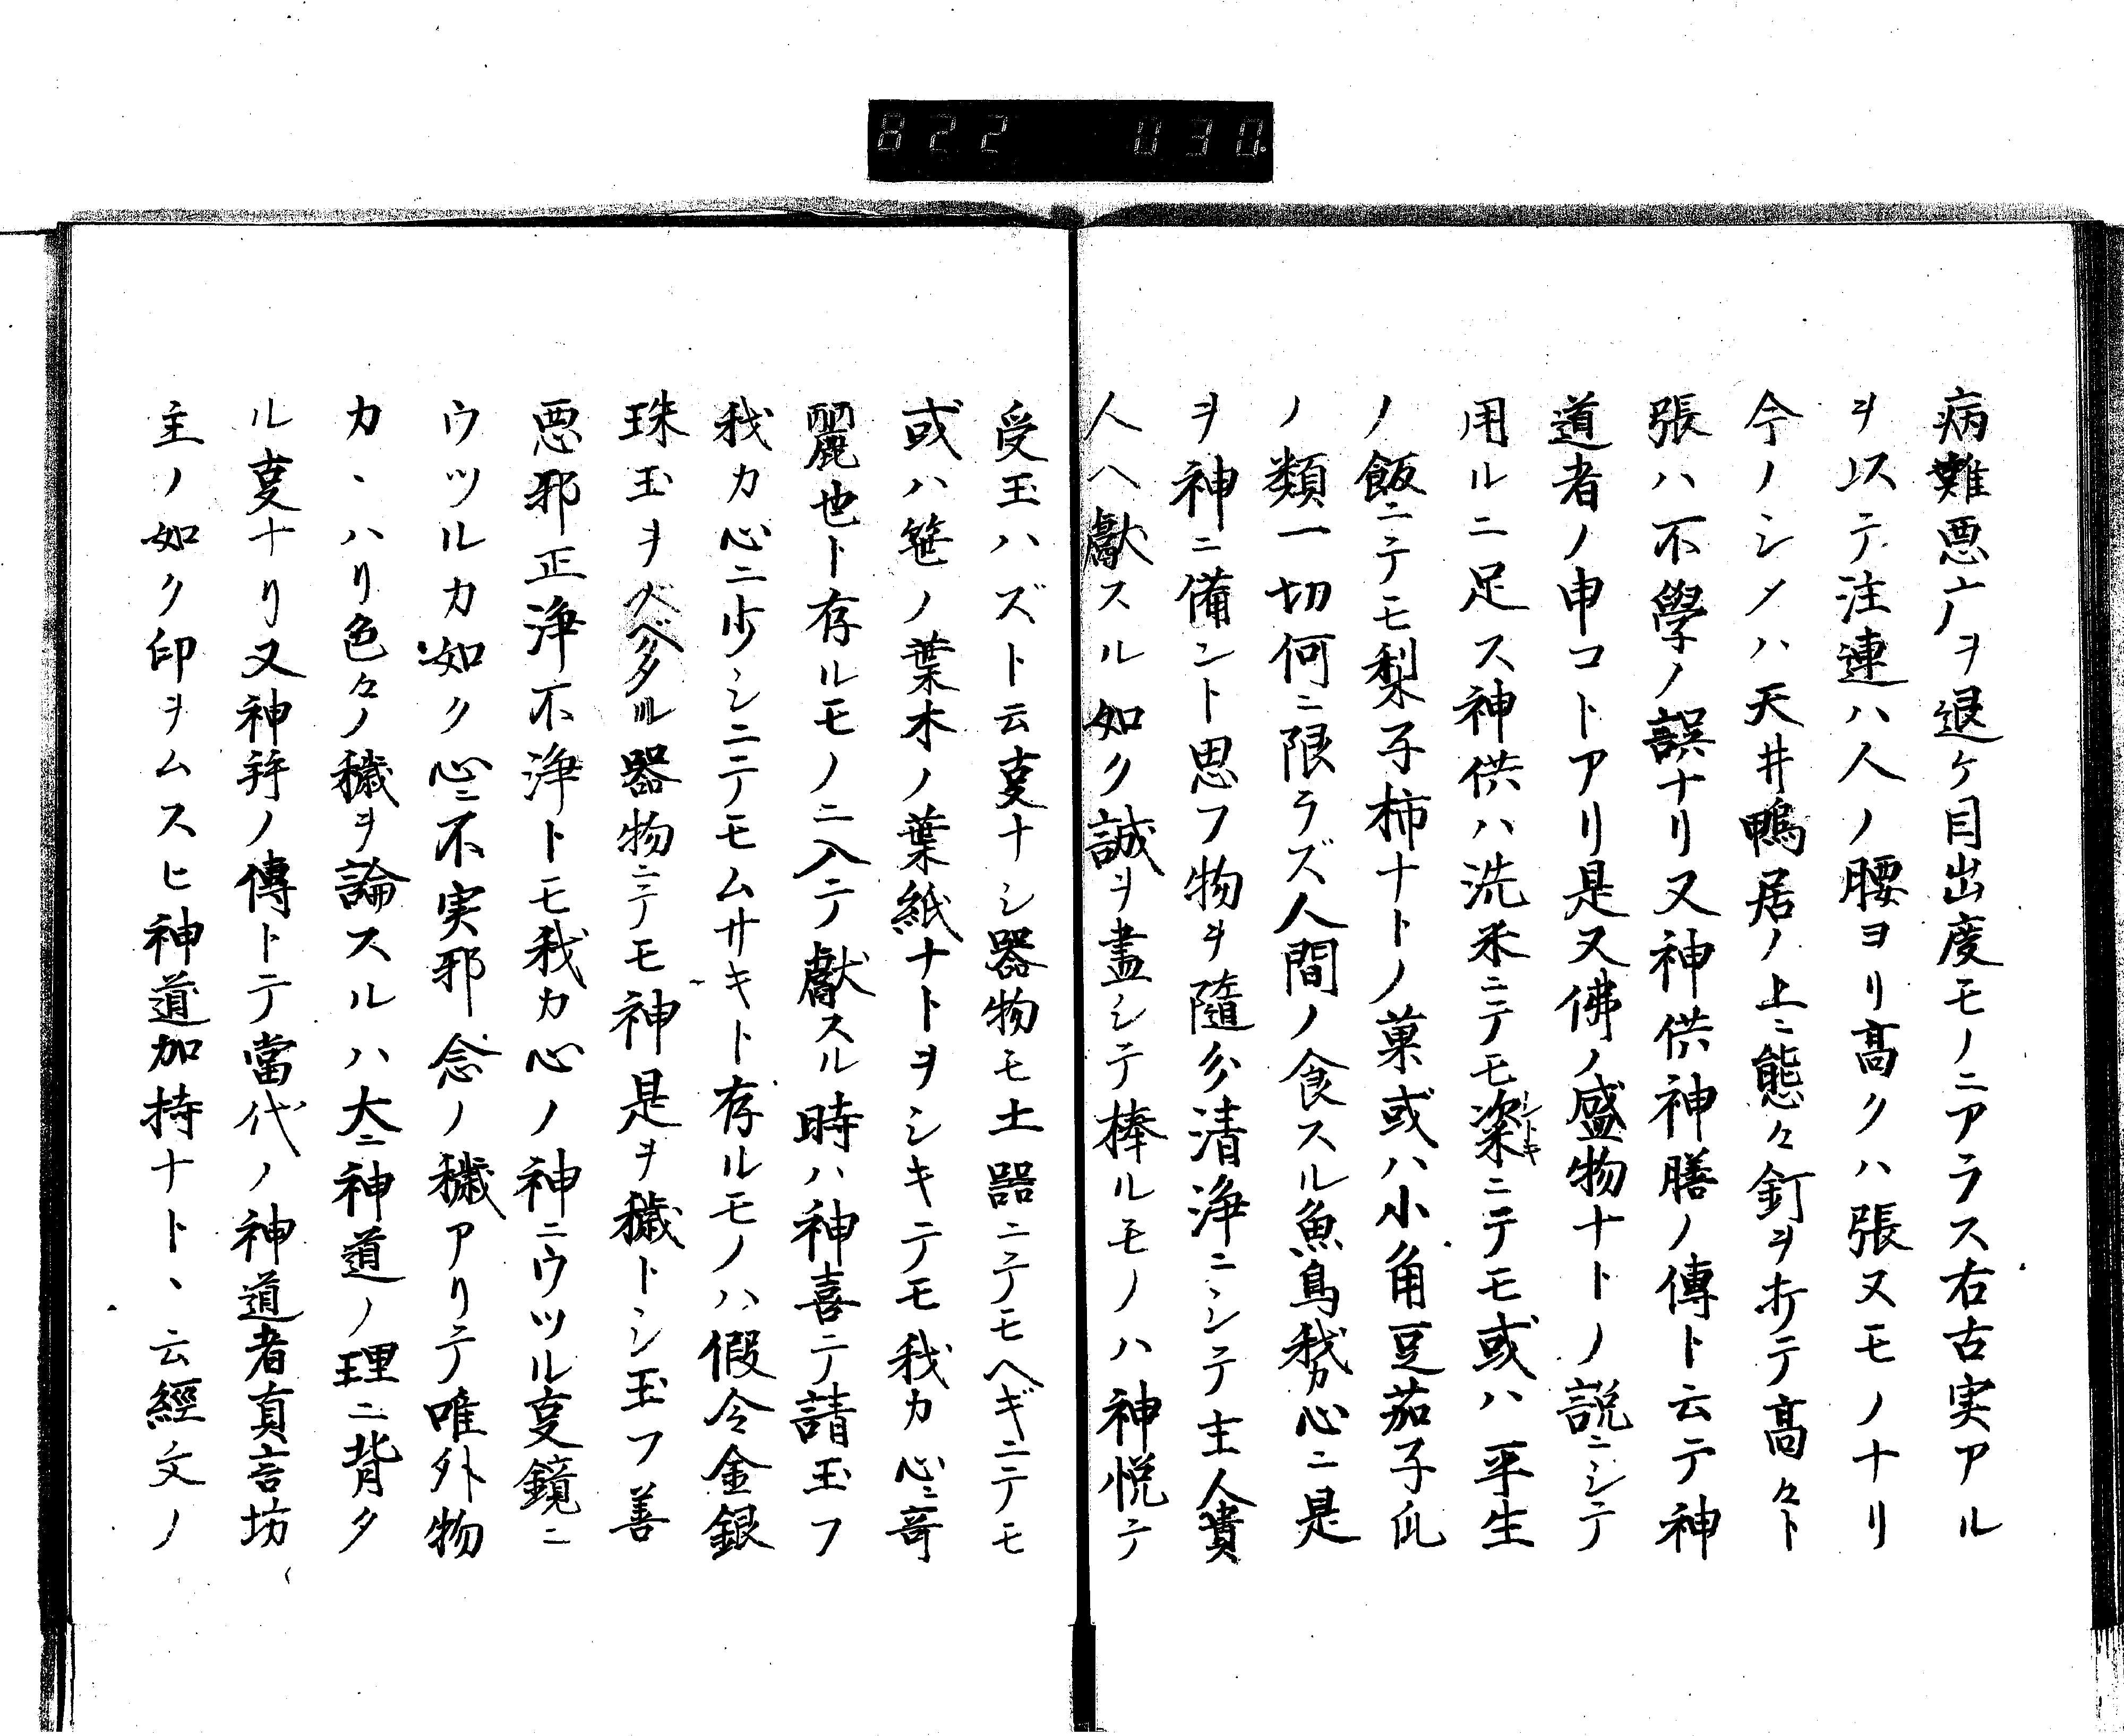 822 030.
病難悪广ヲ退ケ目出度モノニアラス右古実アル
ヲ以テ注連ハ人ノ腰ヨリ髙クハ張ヌモノナリ
今ノシメハ天井鴨居ノ上ニ態々釘ヲ打テ髙々ト
張ハ不學ノ誤ナリ又神供神膳ノ傳ト云テ神
道者ノ申コトアリ是又佛ノ盛物ナトノ説ニシテ
用ルニ足ス神供ハ洗米ニテモ粢シトキニテモ或ハ平生
ノ飯ニテモ梨子柿ナトノ菓或ハ小角豆茄子瓜
ノ類一切何ニ限ラズ人間ノ食スル魚鳥我カ心ニ是
ヲ神ニ備ント思フ物ヲ隨分清浄ニシテ主人貴
人ヘ獻スル如ク誠ヲ盡シテ棒ルモノハ神悦テ
受玉ハズト云㕝ナシ器物モ土器ニテモヘギニテモ
或ハ笹ノ葉木ノ葉紙ナトヲシキテモ我カ心ニ竒
麗也ト存ルモノニ入テ獻スル時ハ神喜テ請玉フ
我カ心ニ少シニテモムサキト存ルモノハ假令金銀
珠玉ヲノベタル器物ニテモ神是ヲ穢トシ玉フ善
悪邪正浄不浄トモ我カ心ノ神ニウツル㕝鏡ニ
ウツルカ如ク心ニ不実邪念ノ穢アリテ唯外物
カヽハリ色々ノ穢ヲ論スルハ大ニ神道ノ理ニ背ク
ル㕝ナリ又神拜ノ傳トテ當代ノ神道者真言坊
主ノ如ク印ヲムスヒ神道加持ナトヽ云經文ノ